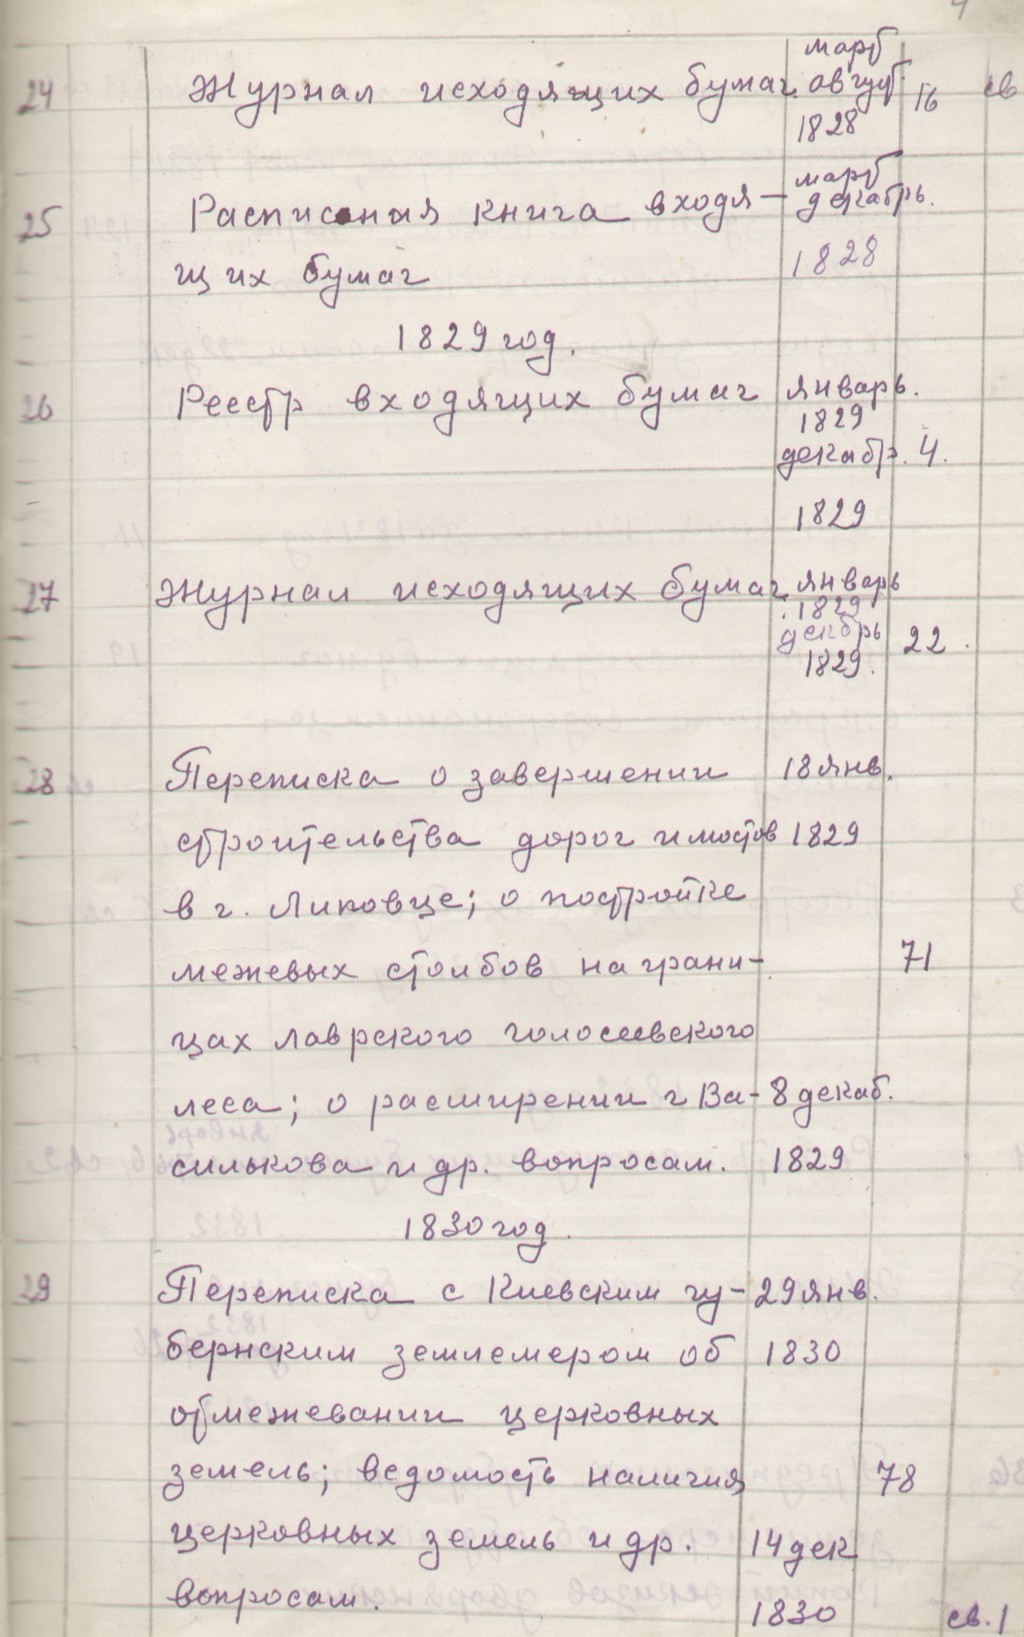 март
24 Журнал исходящих бумаг август 16 св
1828
март
25 Расписная книга входя- декабрь.
щих бумаг 1828
1829 год.
26 Реестр входящих бумаг январь.
1829
декабр. 4.
1829
27 Журнал исходящих бумаг январь
1829
декбрь 22.
1829.
28 Переписка о завершении 18 янв.
строительства дорог и мостов 1829
в г. Липовце; о постройке
межевых столбов на грани- 71
цах лаврского голосеевского
леса; о расширении г Ва- 8 декаб.
силькова и др. вопросам. 1829
1830 год.
29 Переписка с Киевским гу- 29 янв.
бернским землемером об 1830
обмежевании церковных
земель; ведомость наличия 78
церковных земель и др. 14 дек
вопросам. 1830 св. 1